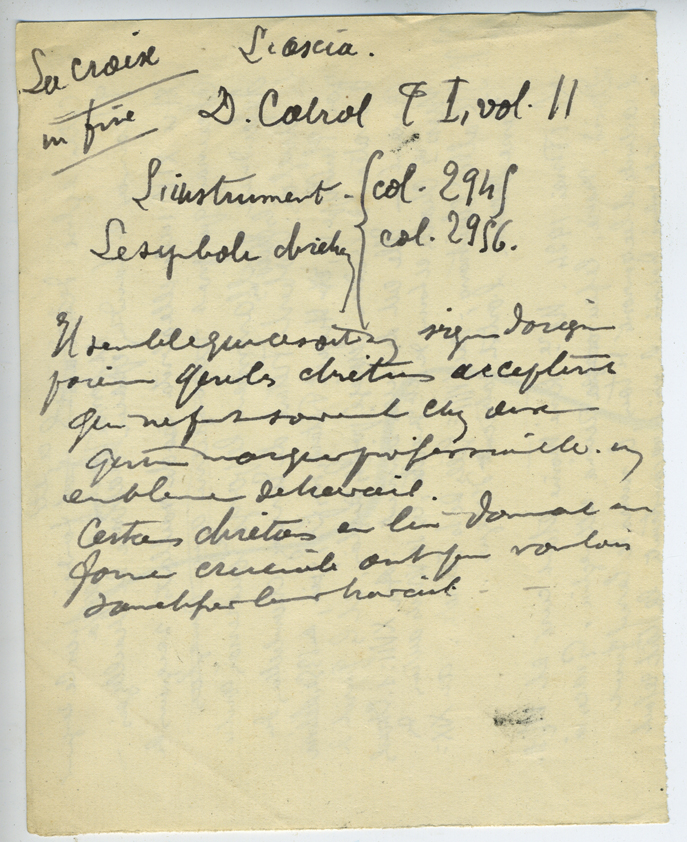 La croix
in fine
L'ascia.
D. Cabrol T I, vol. II
L'instrument - col. 2945
Le symbole chrétien col. 2956.
Il semble que ce soit un signe d'origine
païen que les chrétiens acceptèrent
qui ne fut souvent chez eux
qu'une marque professionnelle. un
emblème de travail.
Certains chrétiens en lui donnant une
forme cruciale ont pu vouloir
sanctifier leur travail.